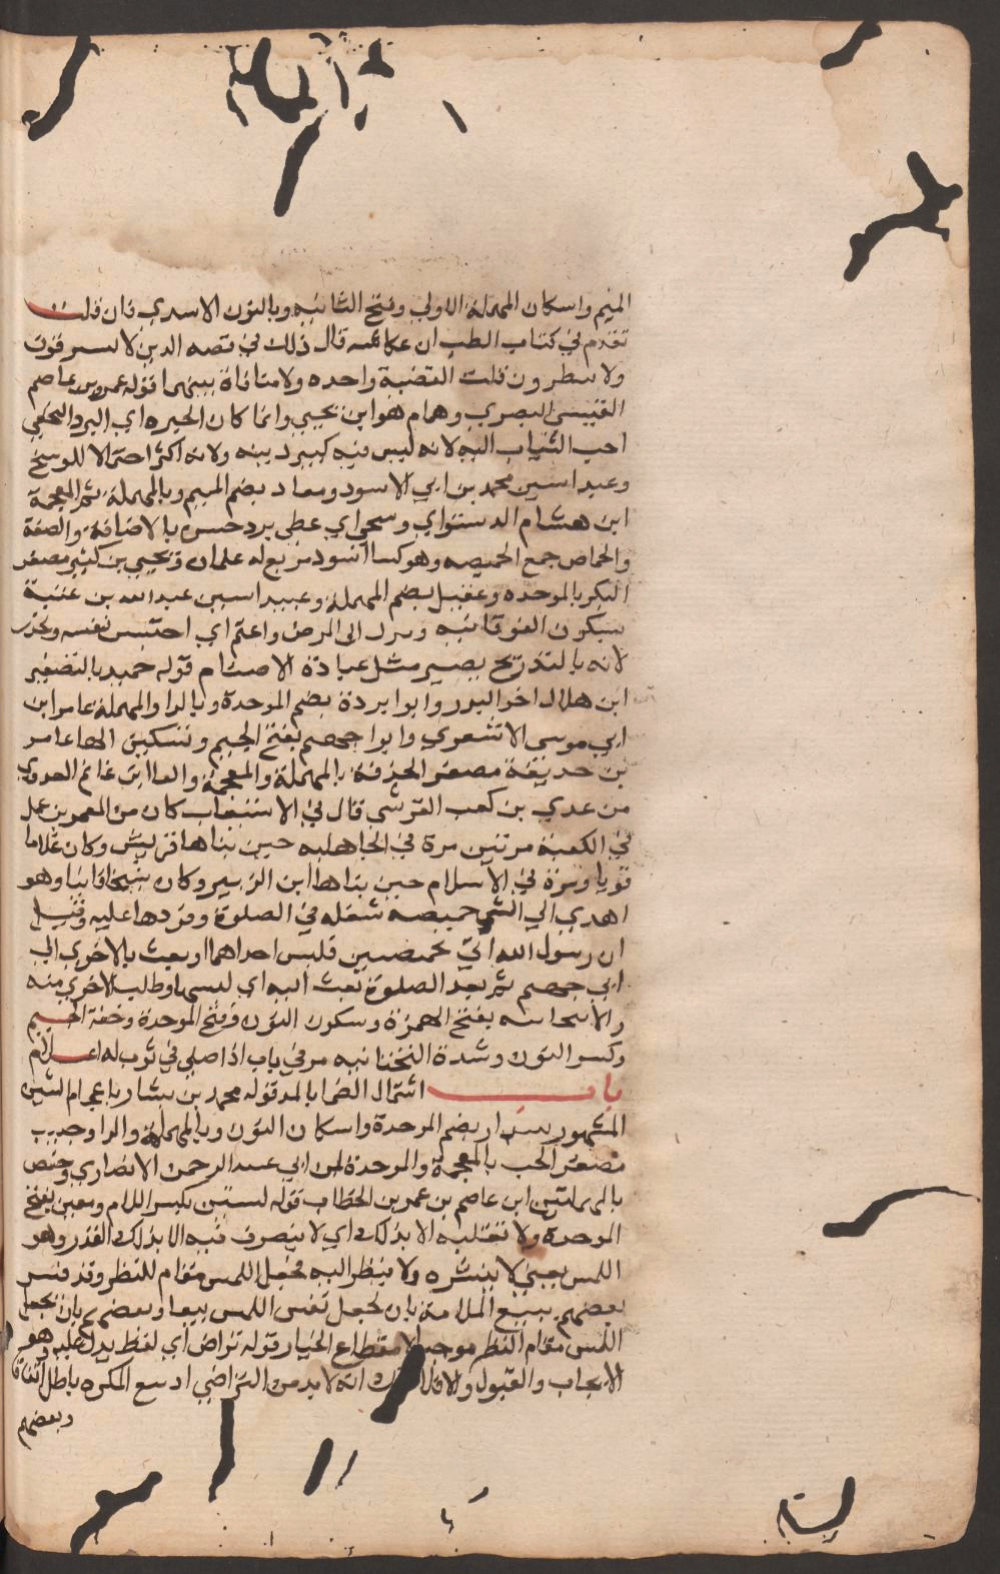 الميم واسكان المهملة الاولى وفتح الثانيه وبالنون الاسدي فان قلت
تقدم في كتاب الطب ان عكاشه قال ذلك في قصه الذين لا يسترقون
ولا يتطيرون قلت القضية واحده ولا منافاة بينهما قوله عمرو بن عاصم
القيسي البصري وهمام هو ابن يحيى وانما كان الحبره اي البرد اليمني
احب الثياب اليه لانه ليس فيه كبير زينه ولانه اكثر احتمالا للوسخ
وعبد الله بن محمد بن ابي الاسود ومعاذ بضم الميم وبالمهملة ثم المعجمة
ابن هشام الدستواي وسجي اي غطي ببرد حبره بالاضافة والصفة
والخماص جمع الخميصه وهو كسا اسود مربع له علمان ويحيى بن بكير مصغر
البكر بالموحده وعقيل بضم المهملة وعبيد الله بن عبد الله بن عتبة
بسكون الفوقانيه ونزل الى المرض واغتم اي احتبس نفسه ويحذر
لانه بالتدريج يصير مثل عبادة الاصنام قوله حميد بالتصغير
ابن هلال اخو البدر وابو بردة بضم الموحدة وبالرا والمهملة عامر ابن
ابي موسى الاشعري وابوا جهم بفتح الجيم وتسكين الها عامر
بن حذيفة مصغر الحذفة بالمهملة والمعجمة والفا ابن غانم العدوي
من عدي بن كعب القرشي قال في الاستيعاب كان من المعمرين عمل
في الكعبة مرتين مرة في الجاهليه حين بناها قريش وكان غلاما
قويا ومرة في الاسلام حين بناها ابن الزبير وكان شيخا فانيا وهو
اهدى الى النبي خميصه شغله في الصلوة وردها عليه وقيل
ان رسول الله اتي بخميصين فلبس احداهما وبعث بالاخرى الى
ابي جهم ثم بعد الصلوة بعث اليه اي لبسها وطلب الاخرى منه
والانبجانيه بفتح الهمزة وسكون النون وفتح الموحدة وخفة الجيم
وكسر النون وشدة التحتانيه مر في باب اذا صلى في ثوب له اعلام
باب اشتمال الصما بالمد قوله محمد بن بشار باعجام الشين
المشهور ببندار بضم الموحدة واسكان النون وبالمهملة والرا وخبيب
مصغر الخب بالمعجمة والموحدة ابن ابي عبد الرحمن الانصاري وحفص
بالمهملتين ابن عاصم بن عمر بن الخطاب قوله لبستين بكسر اللام وبيعتين بفتح
الموحده ولا تقلبه الا بذلك اي لا يتصرف فيه الا بذلك القدر وهو
اللمس يعني لا ينشره ولا ينظر اليه فجعل اللمس مقام للنظر وقد فسر
بعضهم ببيع الملامسة بان يجعل نفس اللمس بيعا وبعضهم بان يجعل
اللمس مقام النظر موجب لانقطاع الخيار قوله تراض اي لفظ يدل عليه وهو
الايجاب والقبول والا فلا شك انه لا بد من التراضي اذ بيع المكره باطل اتفاقا
وبعضهم